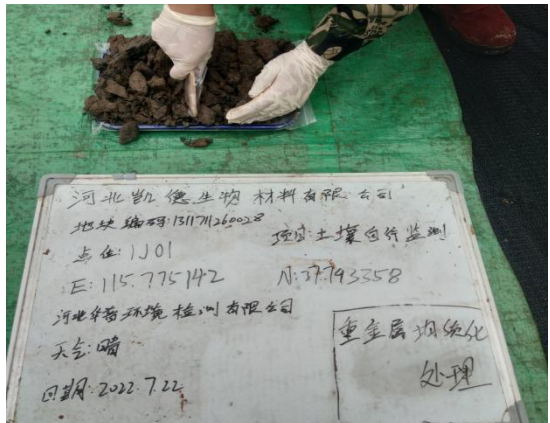 河北凯德生物材料有限公司
地块编码:1311711260028
项目:土壤自行监测
点位:1J01
E:115.775142
N:37.793358
河北华普环境检测有限公司
天气:晴
日期:2022.7.22
重金属均质化
处理